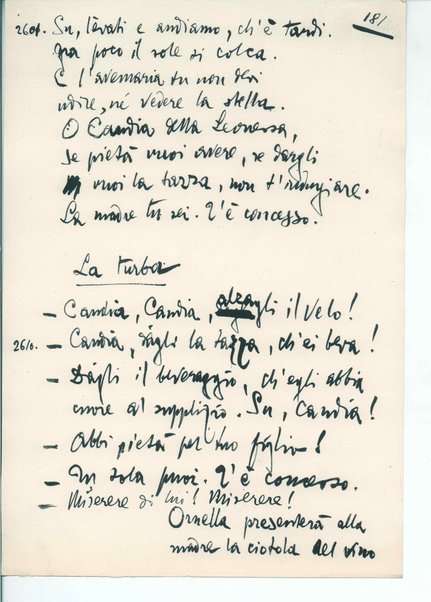 181
2601. Su, lèvati e andiamo, ch'è tardi.
fra poco il sole si colca.
E l'avemaria tu non devi
udire, né vedere la stella.
O Candia della Leonessa,
se pietà vuoi avere, se dargli
vuoi la tazza, non t'indugiare.
La madre tu sei. T'è concesso.
La turba
— Candia, Candia, alzagli il velo!
2610. — Candia, dàgli la tazza, ch'ei beva!
— Dàgli il beveraggio, ch'egli abbia
cuore al supplizio. Su, Candia!
— Abbi pietà pel tuo figlio!
— Tu sola puoi. T'è concesso.
— Miserere di lui! Miserere!
Ornella presenterà alla
madre la ciotola del vino